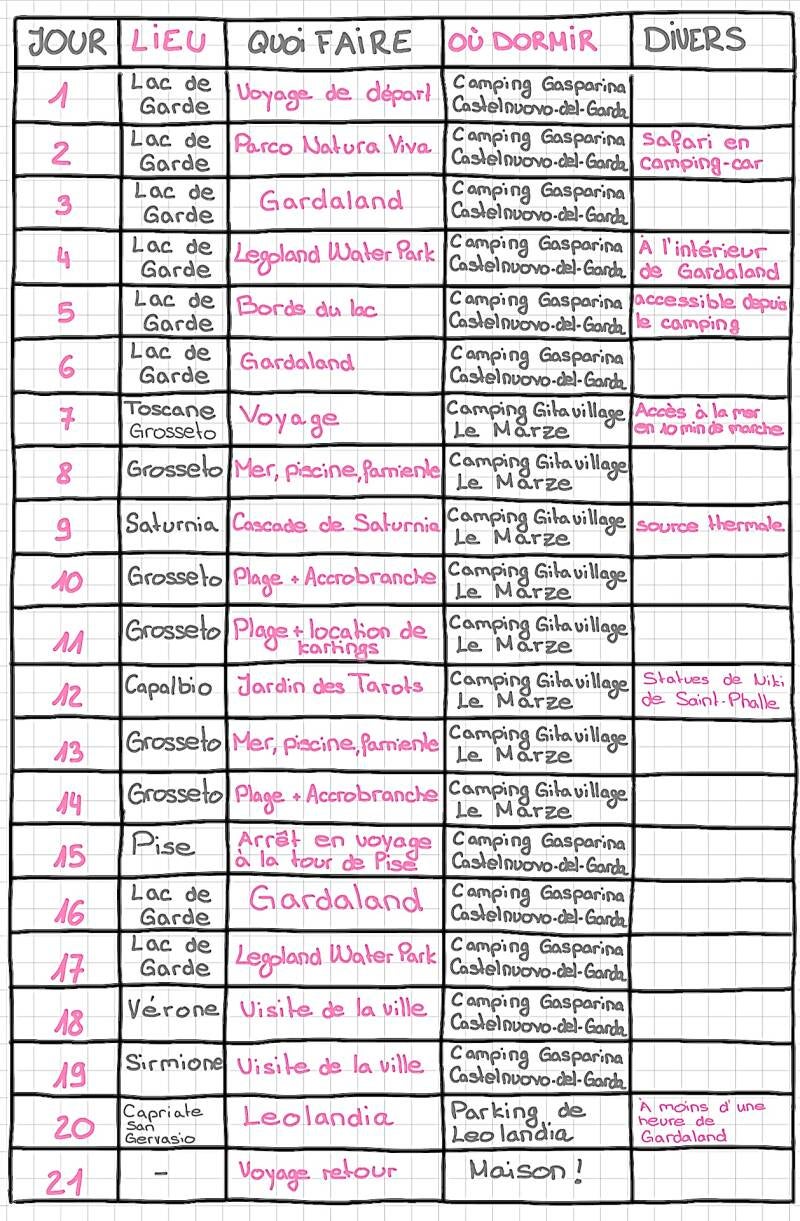 JOUR LIEU QUOI FAIRE OÙ DORMIR DIVERS
1 Lac de Garde Voyage de départ Camping Gasparina Castelnuovo-del-Garda
2 Lac de Garde Parco Natura Viva Camping Gasparina Castelnuovo-del-Garda Safari en camping-car
3 Lac de Garde Gardaland Camping Gasparina Castelnuovo-del-Garda
4 Lac de Garde Legoland Water Park Camping Gasparina Castelnuovo-del-Garda À l'intérieur de Gardaland
5 Lac de Garde Bords du lac Camping Gasparina Castelnuovo-del-Garda accessible depuis le camping
6 Lac de Garde Gardaland Camping Gasparina Castelnuovo-del-Garda
7 Toscane Grosseto Voyage Camping Gitavillage Le Marze Accès à la mer en 10 min de marche
8 Grosseto Mer, piscine, farniente Camping Gitavillage Le Marze
9 Saturnia Cascade de Saturnia Camping Gitavillage Le Marze source thermale
10 Grosseto Plage + Accrobranche Camping Gitavillage Le Marze
11 Grosseto Plage + location de kartings Camping Gitavillage Le Marze
12 Capalbio Jardin des Tarots Camping Gitavillage Le Marze Statues de Niki de Saint-Phalle
13 Grosseto Mer, piscine, farniente Camping Gitavillage Le Marze
14 Grosseto Plage + Accrobranche Camping Gitavillage Le Marze
15 Pise Arrêt en voyage à la tour de Pise Camping Gasparina Castelnuovo-del-Garda
16 Lac de Garde Gardaland Camping Gasparina Castelnuovo-del-Garda
17 Lac de Garde Legoland Water Park Camping Gasparina Castelnuovo-del-Garda
18 Vérone Visite de la ville Camping Gasparina Castelnuovo-del-Garda
19 Sirmione Visite de la ville Camping Gasparina Castelnuovo-del-Garda
20 Capriate San Gervasio Leolandia Parking de Leolandia À moins d'une heure de Gardaland
21 - Voyage retour Maison !